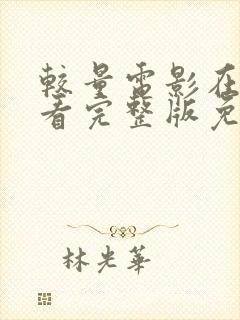 较量電影在
看完整版免
林光華